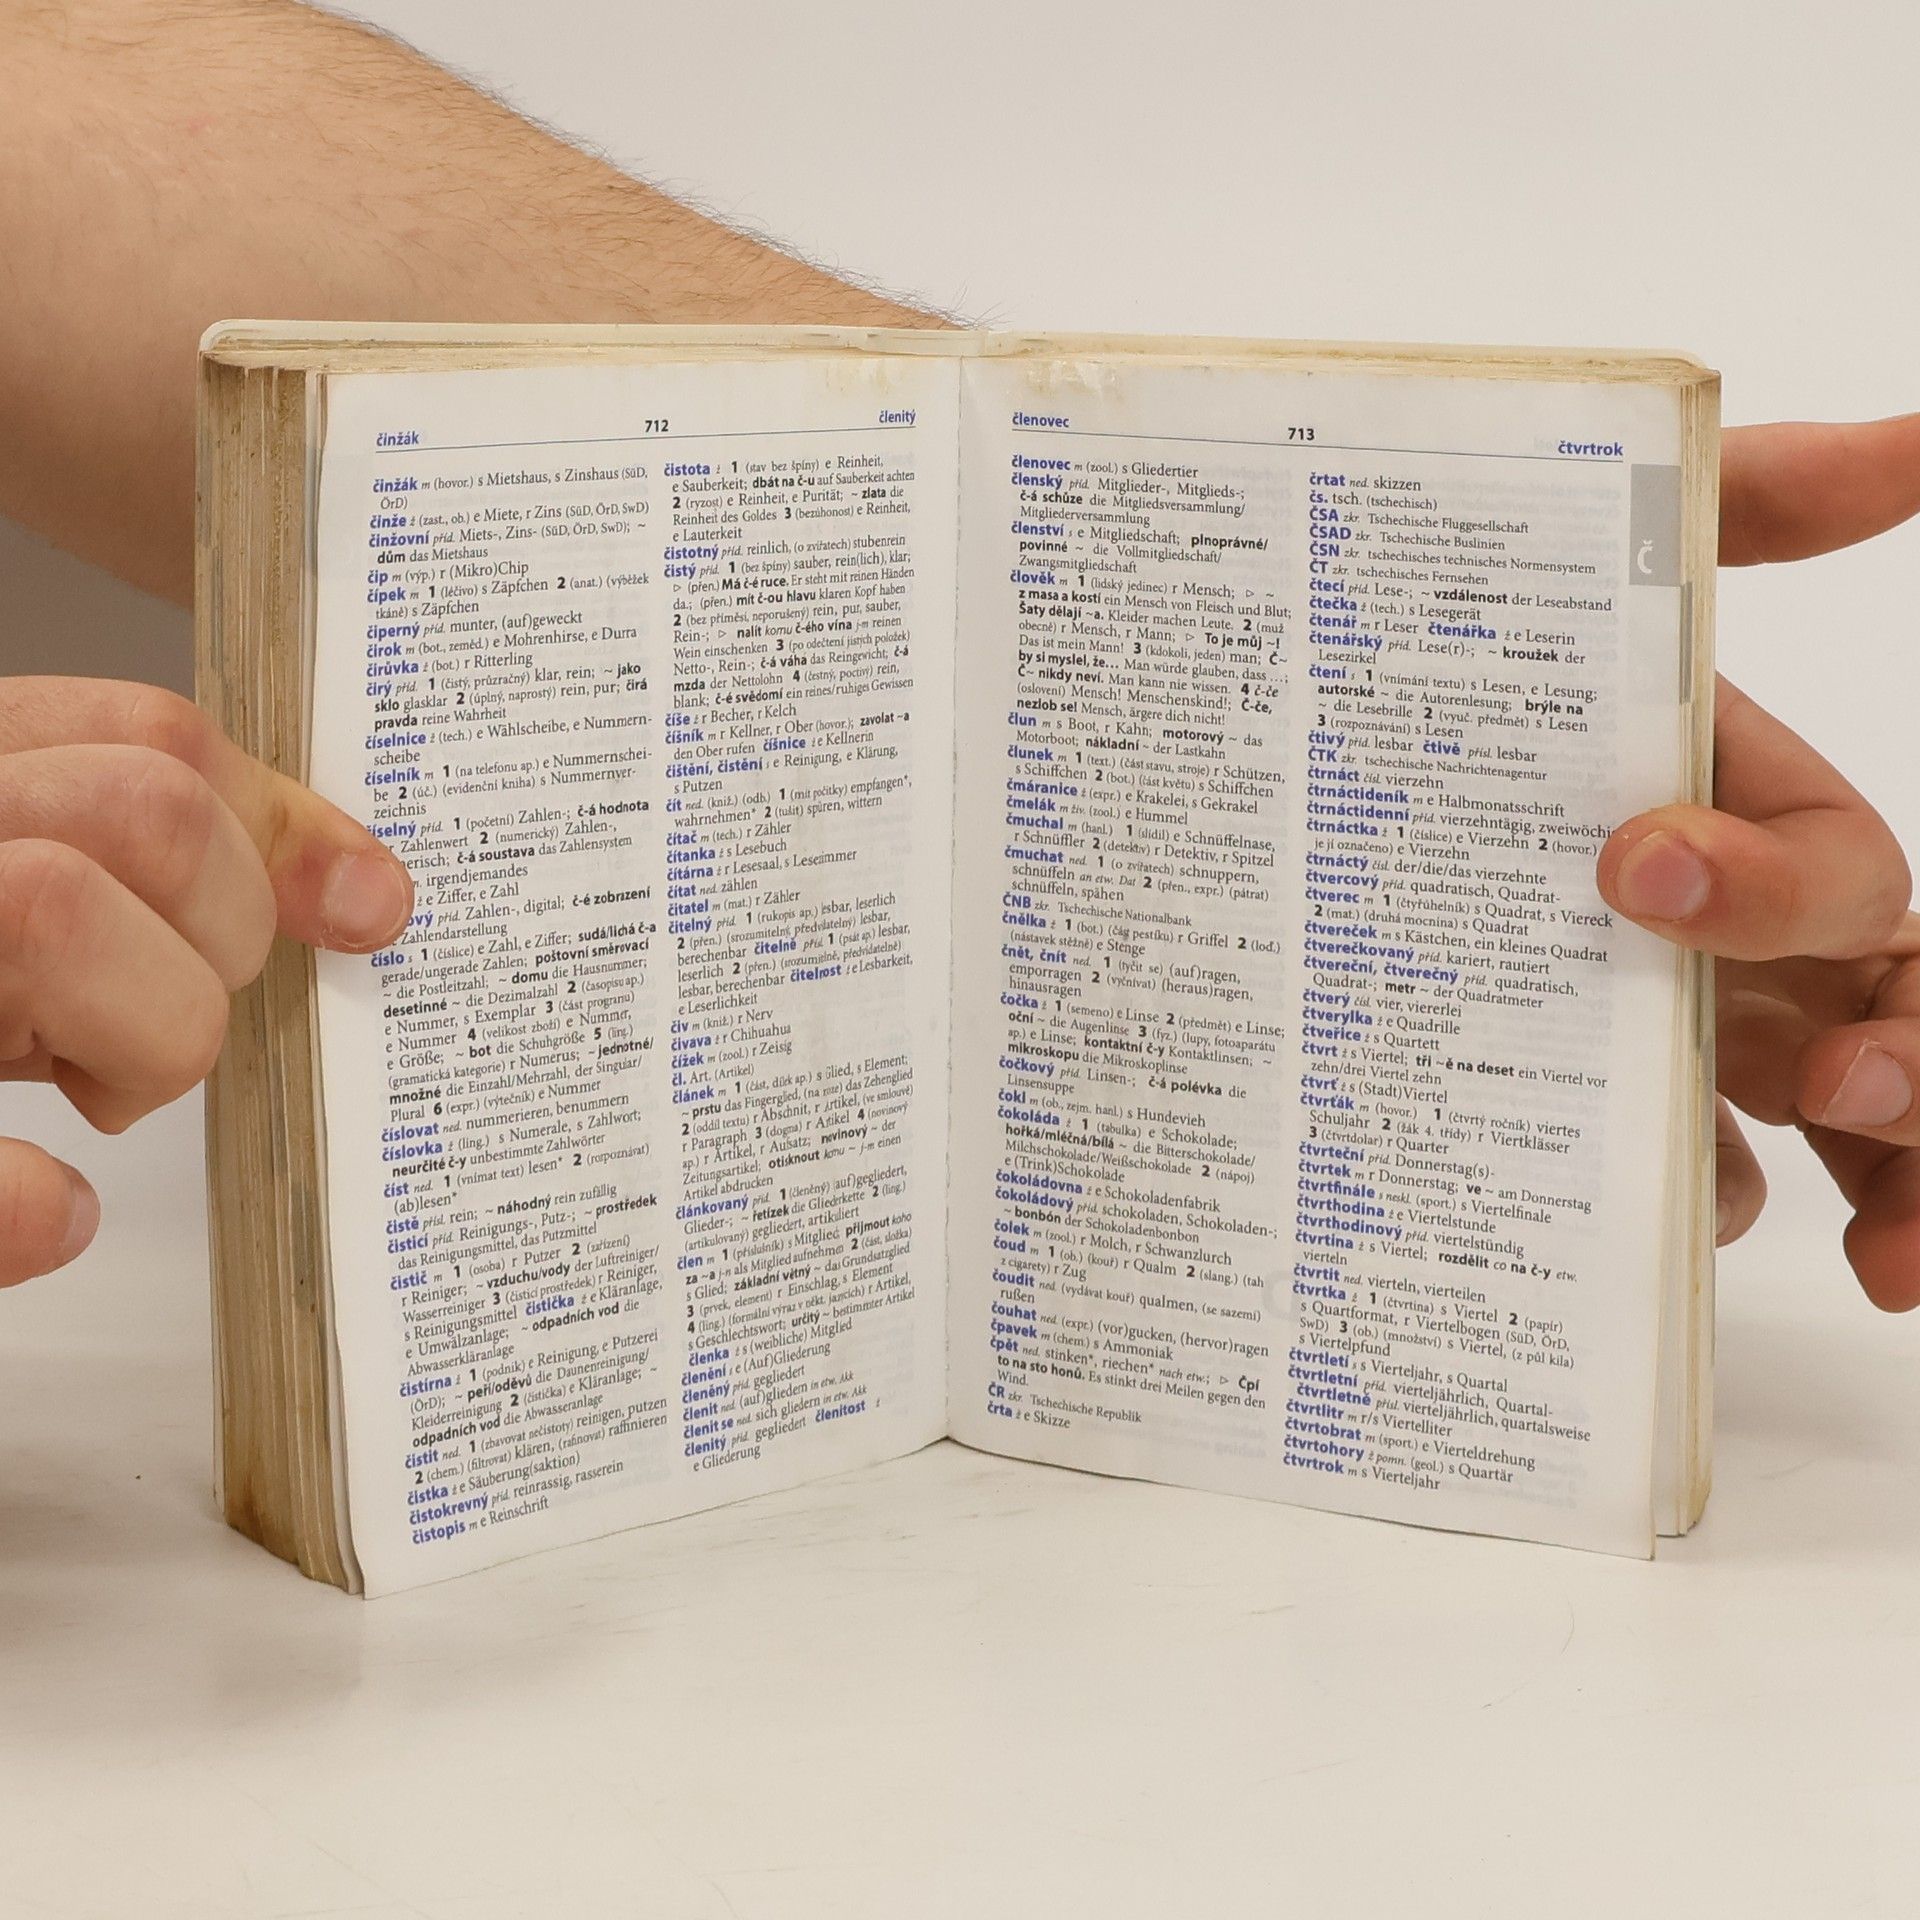 činžák 712 členitý
činžák m (hovor.) s Mietshaus, s Zinshaus (SüD,
ÖrD)
činže ž (zast., ob.) e Miete, r Zins (SüD, ÖrD, SwD)
činžovní příd. Miets-, Zins- (SüD, ÖrD, SwD); ~
dům das Mietshaus
čip m (výp.) r (Mikro)Chip
čípek m 1 (léčivo) s Zäpfchen 2 (anat.) (výběžek
tkáně) s Zäpfchen
čiperný příd. munter, (auf)geweckt
čirok m (bot., zeměd.) e Mohrenhirse, e Durra
čirůvka ž (bot.) r Ritterling
čirý příd. 1 (čistý, průzračný) klar, rein; ~ jako
sklo glasklar 2 (úplný, naprostý) rein, pur; čirá
pravda reine Wahrheit
číselnice ž (tech.) e Wählscheibe, e Nummern-
scheibe
číselník m 1 (na telefonu ap.) e Nummernschei-
be 2 (úč.) (evidenční kniha) s Nummernver-
zeichnis
íselný příd. 1 (početní) Zahlen-; č-á hodnota
r Zahlenwert 2 (numerický) Zahlen-,
erisch; č-á soustava das Zahlensystem
irgendjemandes
ž e Ziffer, e Zahl
ový příd. Zahlen-, digital; č-é zobrazení
Zahlendarstellung
číslo s 1 (číslice) e Zahl, e Ziffer; sudá/lichá č-a
gerade/ungerade Zahlen; poštovní směrovací
~ die Postleitzahl; ~ domu die Hausnummer;
desetinné ~ die Dezimalzahl 2 (časopisu ap.)
e Nummer, s Exemplar 3 (část programu)
e Nummer 4 (velikost zboží) e Nummer,
e Größe; ~ bot die Schuhgröße 5 (ling.)
(gramatická kategorie) r Numerus; ~ jednotné/
množné die Einzahl/Mehrzahl, der Singular/
Plural 6 (expr.) (výtečník) e Nummer
číslovat ned. nummerieren, benummern
číslovka ž (ling.) s Numerale, s Zahlwort;
neurčité č-y unbestimmte Zahlwörter
číst ned. 1 (vnímat text) lesen* 2 (rozpoznávat)
(ab)lesen*
čistě přísl. rein; ~ náhodný rein zufällig
čisticí příd. Reinigungs-, Putz-; ~ prostředek
das Reinigungsmittel, das Putzmittel
čistič m 1 (osoba) r Putzer 2 (zařízení)
r Reiniger; ~ vzduchu/vody der Luftreiniger/
Wasserreiniger 3 (čisticí prostředek) r Reiniger,
s Reinigungsmittel čistička ž e Kläranlage,
e Umwälzanlage; ~ odpadních vod die
Abwasserkläranlage
čistírna ž 1 (podnik) e Reinigung, e Putzerei
(ÖrD); ~ peří/oděvů die Daunenreinigung/
Kleiderreinigung 2 (čistička) e Kläranlage; ~
odpadních vod die Abwasseranlage
čistit ned. 1 (zbavovat nečistoty) reinigen, putzen
2 (chem.) (filtrovat) klären, (rafinovat) raffinieren
čistka ž e Säuberung(saktion)
čistokrevný příd. reinrassig, rasserein
čistopis m e Reinschrift
čistota ž 1 (stav bez špíny) e Reinheit,
e Sauberkeit; dbát na č-u auf Sauberkeit achten
2 (ryzost) e Reinheit, e Purität; ~ zlata die
Reinheit des Goldes 3 (bezúhonost) e Reinheit,
e Lauterkeit
čistotný příd. reinlich, (o zvířatech) stubenrein
čistý příd. 1 (bez špíny) sauber, rein(lich), klar;
▷ (přen.) Má č-é ruce. Er steht mit reinen Händen
da.; (přen.) mít č-ou hlavu klaren Kopf haben
2 (bez příměsi, neporušený) rein, pur, sauber,
Rein-; ▷ nalít komu č-ého vína j-m reinen
Wein einschenken 3 (po odečtení jistých položek)
Netto-, Rein-; č-á váha das Reingewicht; č-á
mzda der Nettolohn 4 (čestný, poctivý) rein,
blank; č-é svědomí ein reines/ruhiges Gewissen
číše ž r Becher, r Kelch
číšník m r Kellner, r Ober (hovor.); zavolat ~a
den Ober rufen číšnice ž e Kellnerin
čištění, čistění s e Reinigung, e Klärung,
s Putzen
čít ned. (kniž.) (odb.) 1 (mít počitky) empfangen*,
wahrnehmen* 2 (tušit) spüren, wittern
čítač m (tech.) r Zähler
čítanka ž s Lesebuch
čítárna ž r Lesesaal, s Lesezimmer
čítat ned. zählen
čitatel m (mat.) r Zähler
čitelný příd. 1 (rukopis ap.) lesbar, leserlich
2 (přen.) (srozumitelný, předvídatelný) lesbar,
berechenbar čitelně přísl. 1 (psát ap.) lesbar,
leserlich 2 (přen.) (srozumitelně, předvídatelně)
lesbar, berechenbar čitelnost ž e Lesbarkeit,
e Leserlichkeit
čiv m (kniž.) r Nerv
čivava ž r Chihuahua
čížek m (zool.) r Zeisig
čl. Art. (Artikel)
článek m 1 (část, dílek ap.) s Glied, s Element;
~ prstu das Fingerglied, (na noze) das Zehenglied
2 (oddíl textu) r Abschnitt, r Artikel, (ve smlouvě)
r Paragraph 3 (dogma) r Artikel 4 (novinový
ap.) r Artikel, r Aufsatz; novinový ~ der
Zeitungsartikel; otisknout komu ~ j-m einen
Artikel abdrucken
článkovaný příd. 1 (členěný) (auf)gegliedert,
Glieder-; ~ řetízek die Gliederkette 2 (ling.)
(artikulovaný) gegliedert, artikuliert
člen m 1 (příslušník) s Mitglied; přijmout koho
za ~a j-n als Mitglied aufnehmen 2 (část, složka)
s Glied; základní větný ~ das Grundsatzglied
3 (prvek, element) r Einschlag, s Element
4 (ling.) (formální výraz v někt. jazycích) r Artikel,
s Geschlechtswort; určitý ~ bestimmter Artikel
členka ž s (weibliche) Mitglied
členění s e (Auf)Gliederung
členěný příd. gegliedert
členit ned. (auf)gliedern in etw. Akk
členit se ned. sich gliedern in etw. Akk
členitý příd. gegliedert členitost ž
e Gliederung
členovec 713 čtvrtrok
členovec m (zool.) s Gliedertier
členský příd. Mitglieder-, Mitglieds-;
č-á schůze die Mitgliedsversammlung/
Mitgliederversammlung
členství s e Mitgliedschaft; plnoprávné/
povinné ~ die Vollmitgliedschaft/
Zwangsmitgliedschaft
člověk m 1 (lidský jedinec) r Mensch; ▷ ~
z masa a kostí ein Mensch von Fleisch und Blut;
Šaty dělají ~a. Kleider machen Leute. 2 (muž
obecně) r Mensch, r Mann; ▷ To je můj ~!
Das ist mein Mann! 3 (kdokoli, jeden) man; Č~
by si myslel, že… Man würde glauben, dass …;
Č~ nikdy neví. Man kann nie wissen. 4 č-če
(oslovení) Mensch! Menschenskind!; Č-če,
nezlob se! Mensch, ärgere dich nicht!
člun m s Boot, r Kahn; motorový ~ das
Motorboot; nákladní ~ der Lastkahn
člunek m 1 (text.) (část stavu, stroje) r Schützen,
s Schiffchen 2 (bot.) (část květu) s Schiffchen
čmáranice ž (expr.) e Krakelei, s Gekrakel
čmelák m živ. (zool.) e Hummel
čmuchal m (hanl.) 1 (slídil) e Schnüffelnase,
r Schnüffler 2 (detektiv) r Detektiv, r Spitzel
čmuchat ned. 1 (o zvířatech) schnuppern,
schnüffeln an etw. Dat 2 (přen., expr.) (pátrat)
schnüffeln, spähen
ČNB zkr. Tschechische Nationalbank
čnělka ž 1 (bot.) (část pestíku) r Griffel 2 (loď.)
(nástavek stěžně) e Stenge
čnět, čnít ned. 1 (tyčit se) (auf)ragen,
emporragen 2 (vyčnívat) (heraus)ragen,
hinausragen
čočka ž 1 (semeno) e Linse 2 (předmět) e Linse;
oční ~ die Augenlinse 3 (fyz.) (lupy, fotoaparátu
ap.) e Linse; kontaktní č-y Kontaktlinsen; ~
mikroskopu die Mikroskoplinse
čočkový příd. Linsen-; č-á polévka die
Linsensuppe
čokl m (ob., zejm. hanl.) s Hundevieh
čokoláda ž 1 (tabulka) e Schokolade;
hořká/mléčná/bílá ~ die Bitterschokolade/
Milchschokolade/Weißschokolade 2 (nápoj)
e (Trink)Schokolade
čokoládovna ž e Schokoladenfabrik
čokoládový příd. schokoladen, Schokoladen-;
~ bonbón der Schokoladenbonbon
čolek m (zool.) r Molch, r Schwanzlurch
čoud m 1 (ob.) (kouř) r Qualm 2 (slang.) (tah
z cigarety) r Zug
čoudit ned. (vydávat kouř) qualmen, (se sazemi)
rußen
čouhat ned. (expr.) (vor)gucken, (hervor)ragen
čpavek m (chem.) s Ammoniak
čpět ned. stinken*, riechen* nach etw.; ▷ Čpí
to na sto honů. Es stinkt drei Meilen gegen den
Wind.
ČR zkr. Tschechische Republik
črta ž e Skizze
črtat ned. skizzen
čs. tsch. (tschechisch)
ČSA zkr. Tschechische Fluggesellschaft
ČSAD zkr. Tschechische Buslinien
ČSN zkr. tschechisches technisches Normensystem
ČT zkr. tschechisches Fernsehen
čtecí příd. Lese-; ~ vzdálenost der Leseabstand
čtečka ž (tech.) s Lesegerät
čtenář m r Leser čtenářka ž e Leserin
čtenářský příd. Lese(r)-; ~ kroužek der
Lesezirkel
čtení s 1 (vnímání textu) s Lesen, e Lesung;
autorské ~ die Autorenlesung; brýle na
~ die Lesebrille 2 (vyuč. předmět) s Lesen
3 (rozpoznávání) s Lesen
čtivý příd. lesbar čtivě přísl. lesbar
ČTK zkr. tschechische Nachrichtenagentur
čtrnáct čísl. vierzehn
čtrnáctideník m e Halbmonatsschrift
čtrnáctidenní příd. vierzehntägig, zweiwöchi
čtrnáctka ž 1 (číslice) e Vierzehn 2 (hovor.)
je jí označeno) e Vierzehn
čtrnáctý čísl. der/die/das vierzehnte
čtvercový příd. quadratisch, Quadrat-
čtverec m 1 (čtyřúhelník) s Quadrat, s Viereck
2 (mat.) (druhá mocnina) s Quadrat
čtvereček m s Kästchen, ein kleines Quadrat
čtverečkovaný příd. kariert, rautiert
čtvereční, čtverečný příd. quadratisch,
Quadrat-; metr ~ der Quadratmeter
čtverý čísl. vier, viererlei
čtverylka ž e Quadrille
čtveřice ž s Quartett
čtvrt ž s Viertel; tři ~ě na deset ein Viertel vor
zehn/drei Viertel zehn
čtvrť ž s (Stadt)Viertel
čtvrťák m (hovor.) 1 (čtvrtý ročník) viertes
Schuljahr 2 (žák 4. třídy) r Viertklässer
3 (čtvrtdolar) r Quarter
čtvrteční příd. Donnerstag(s)-
čtvrtek m r Donnerstag; ve ~ am Donnerstag
čtvrtfinále s neskl. (sport.) s Viertelfinale
čtvrthodina ž e Viertelstunde
čtvrthodinový příd. viertelstündig
čtvrtina ž s Viertel; rozdělit co na č-y etw.
vierteln
čtvrtit ned. vierteln, vierteilen
čtvrtka ž 1 (čtvrtina) s Viertel 2 (papír)
s Quartformat, r Viertelbogen (SüD, ÖrD,
SwD) 3 (ob.) (množství) s Viertel, (z půl kila)
s Viertelpfund
čtvrtletí s s Vierteljahr, s Quartal
čtvrtletní příd. vierteljährlich, Quartal-
čtvrtletně přísl. vierteljährlich, quartalsweise
čtvrtlitr m r/s Viertelliter
čtvrtobrat m (sport.) e Vierteldrehung
čtvrtohory ž pomn. (geol.) s Quartär
čtvrtrok m s Vierteljahr
Č